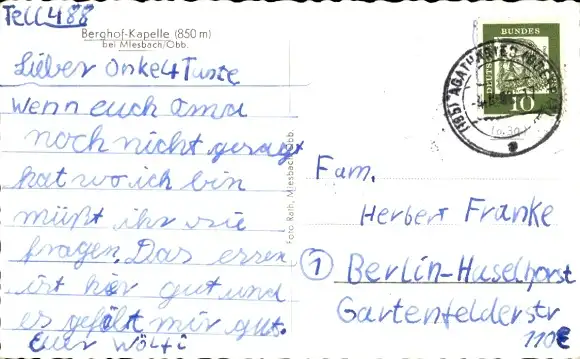 Tell 488
Berghof-Kapelle (850 m)
bei Miesbach/Obb.
Lieber Onkel + Tante
wenn euch Oma
noch nicht gesagt
hat wo ich bin
müßt ihr sie
fragen. Das essen
ist hir gut und
es gefält mir gut.
Euer Wolfi
Foto Rath, Miesbach/Obb.
DEUTSCHE
BUNDES
10
Fam.
Herbert Franke
1 Berlin-Haselhorst
Gartenfelderstr
110